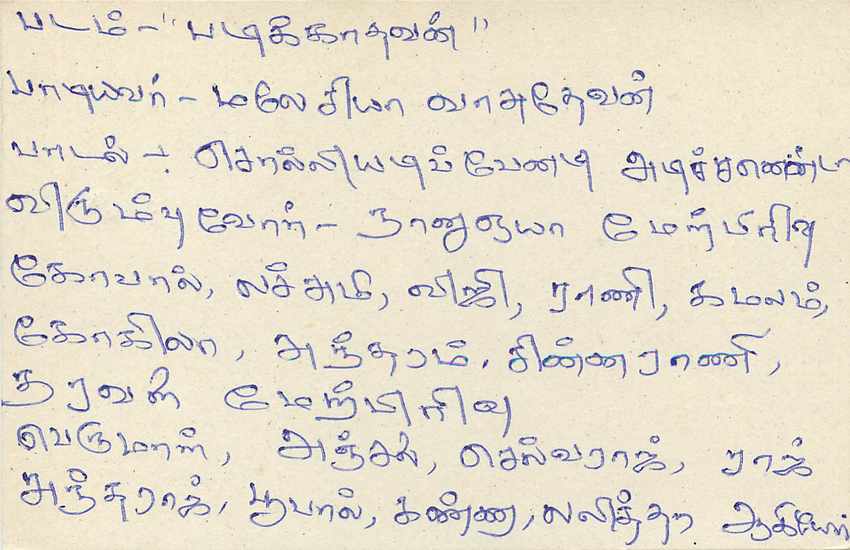 படம் - "படிக்காதவன்"
பாடியவர் - மலேசியா வாசுதேவன்
பாடல் - சொல்லியடிப்பேனடி அடிச்சேனென்டா
விரும்புவோர் - நானுஓயா மேற்பிரிவு
கோபால், லச்சுமி, விஜி, ராணி, கமலம்,
கோகிலா, சுந்தரம், சின்னராணி,
மேற்பிரிவு
பெருமாள், அஞ்சல், செல்வராஜ், ராஜ்
சுந்தராஜ், பூபால், கண்ணு, லலித்தா ஆகியோர்